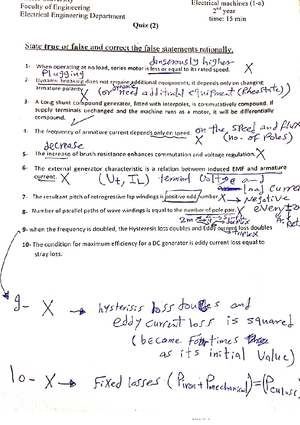 Faculty of Engineering
Electrical Engineering Department
Electrical machines (1-a)
2nd year
time: 15 min
Quiz (2)
State true or false and correct the false statements rationally.
dangerously higher
1- When operating at no load, series motor is less or equal to its rated speed. X
Plugging
2- Dynamic braking does not require additional equipments; it depends only on changing
armature polarity. X (or need additional equipment (Rheostate))
3- A Long shunt compound generator, fitted with interpoles, is commutatively compound. If
supply terminals unchanged and the machine runs as a motor, it will be differentially
compound. ✓
4- The frequency of armature current depends only on speed. X on the speed and flux
(no. of Poles)
decrease
5- The increase of brush resistance enhances commutation and voltage regulation. X
6- The external generator characteristic is a relation between induced EMF and armature
current. X (Vt, IL) terminal Voltage and
7- The resultant pitch of retrogressive lap windings is positive odd number. X → Negative
8- Number of parallel paths of wave windings is equal to the number of pole pair. X
9- when the frequency is doubled, the Hysteresis loss doubles and Eddy current loss doubles
10- The condition for maximum efficiency for a DC generator is eddy current loss equal to
stray loss.
9- X → hysterisis loss doubles and
eddy current loss is squared
(become Four times
as its initial Value)
10- X → Fixed losses (Piron + Pmechanical) = (Pcu loss)